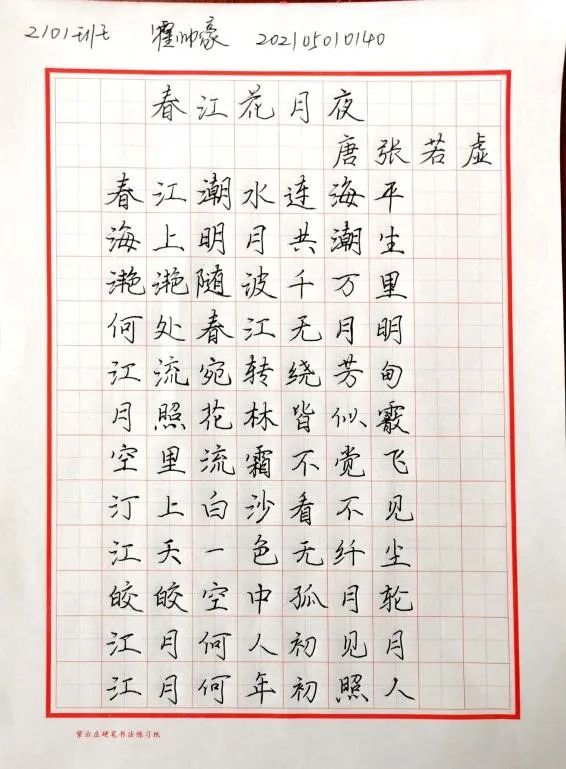 2101班 翟帅豪 202105010140
春江花月夜
唐张若虚
春江潮水连海平
海上明月共潮生
滟滟随波千万里
何处春江无月明
江流宛转绕芳甸
月照花林皆似霰
空里流霜不觉飞
汀上白沙看不见
江天一色无纤尘
皎皎空中孤月轮
江月何人初见月
江月何年初照人
紫云庄硬笔书法练习纸